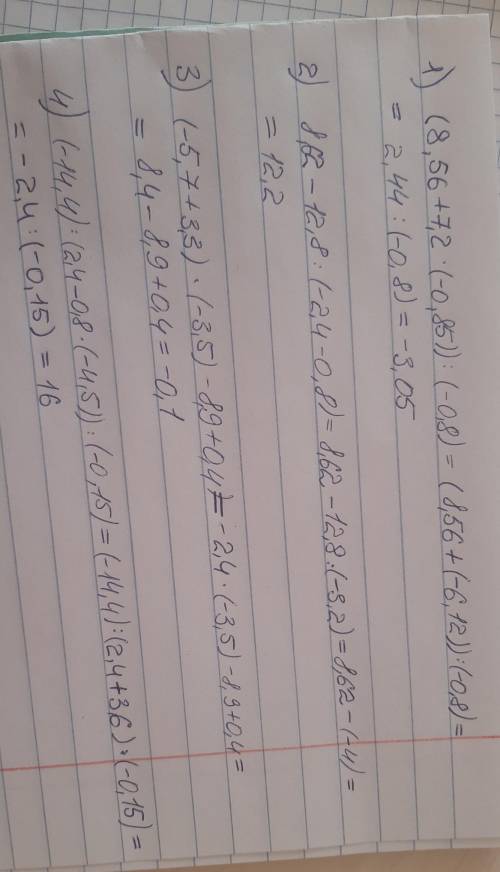 1) (8,56+7,2·(-0,85)):(-0,8)=(8,56+(-6,12)):(-0,8)=
= 2,44:(-0,8)=-3,05
2) 8,62-12,8:(-2,4-0,8)=8,62-12,8:(-3,2)=8,62-(-4)=
= 12,2
3) (-5,7+3,3)·(-3,5)-8,9+0,4=-2,4·(-3,5)-8,9+0,4=
= 8,4-8,9+0,4=-0,1
4) (-14,4):(2,4-0,8·(-4,5)):(-0,15)=(-14,4):(2,4+3,6)·(-0,15)=
= -2,4:(-0,15)=16